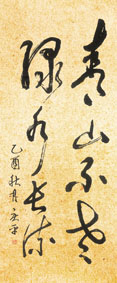 青山不老
绿水长流
乙酉秋月